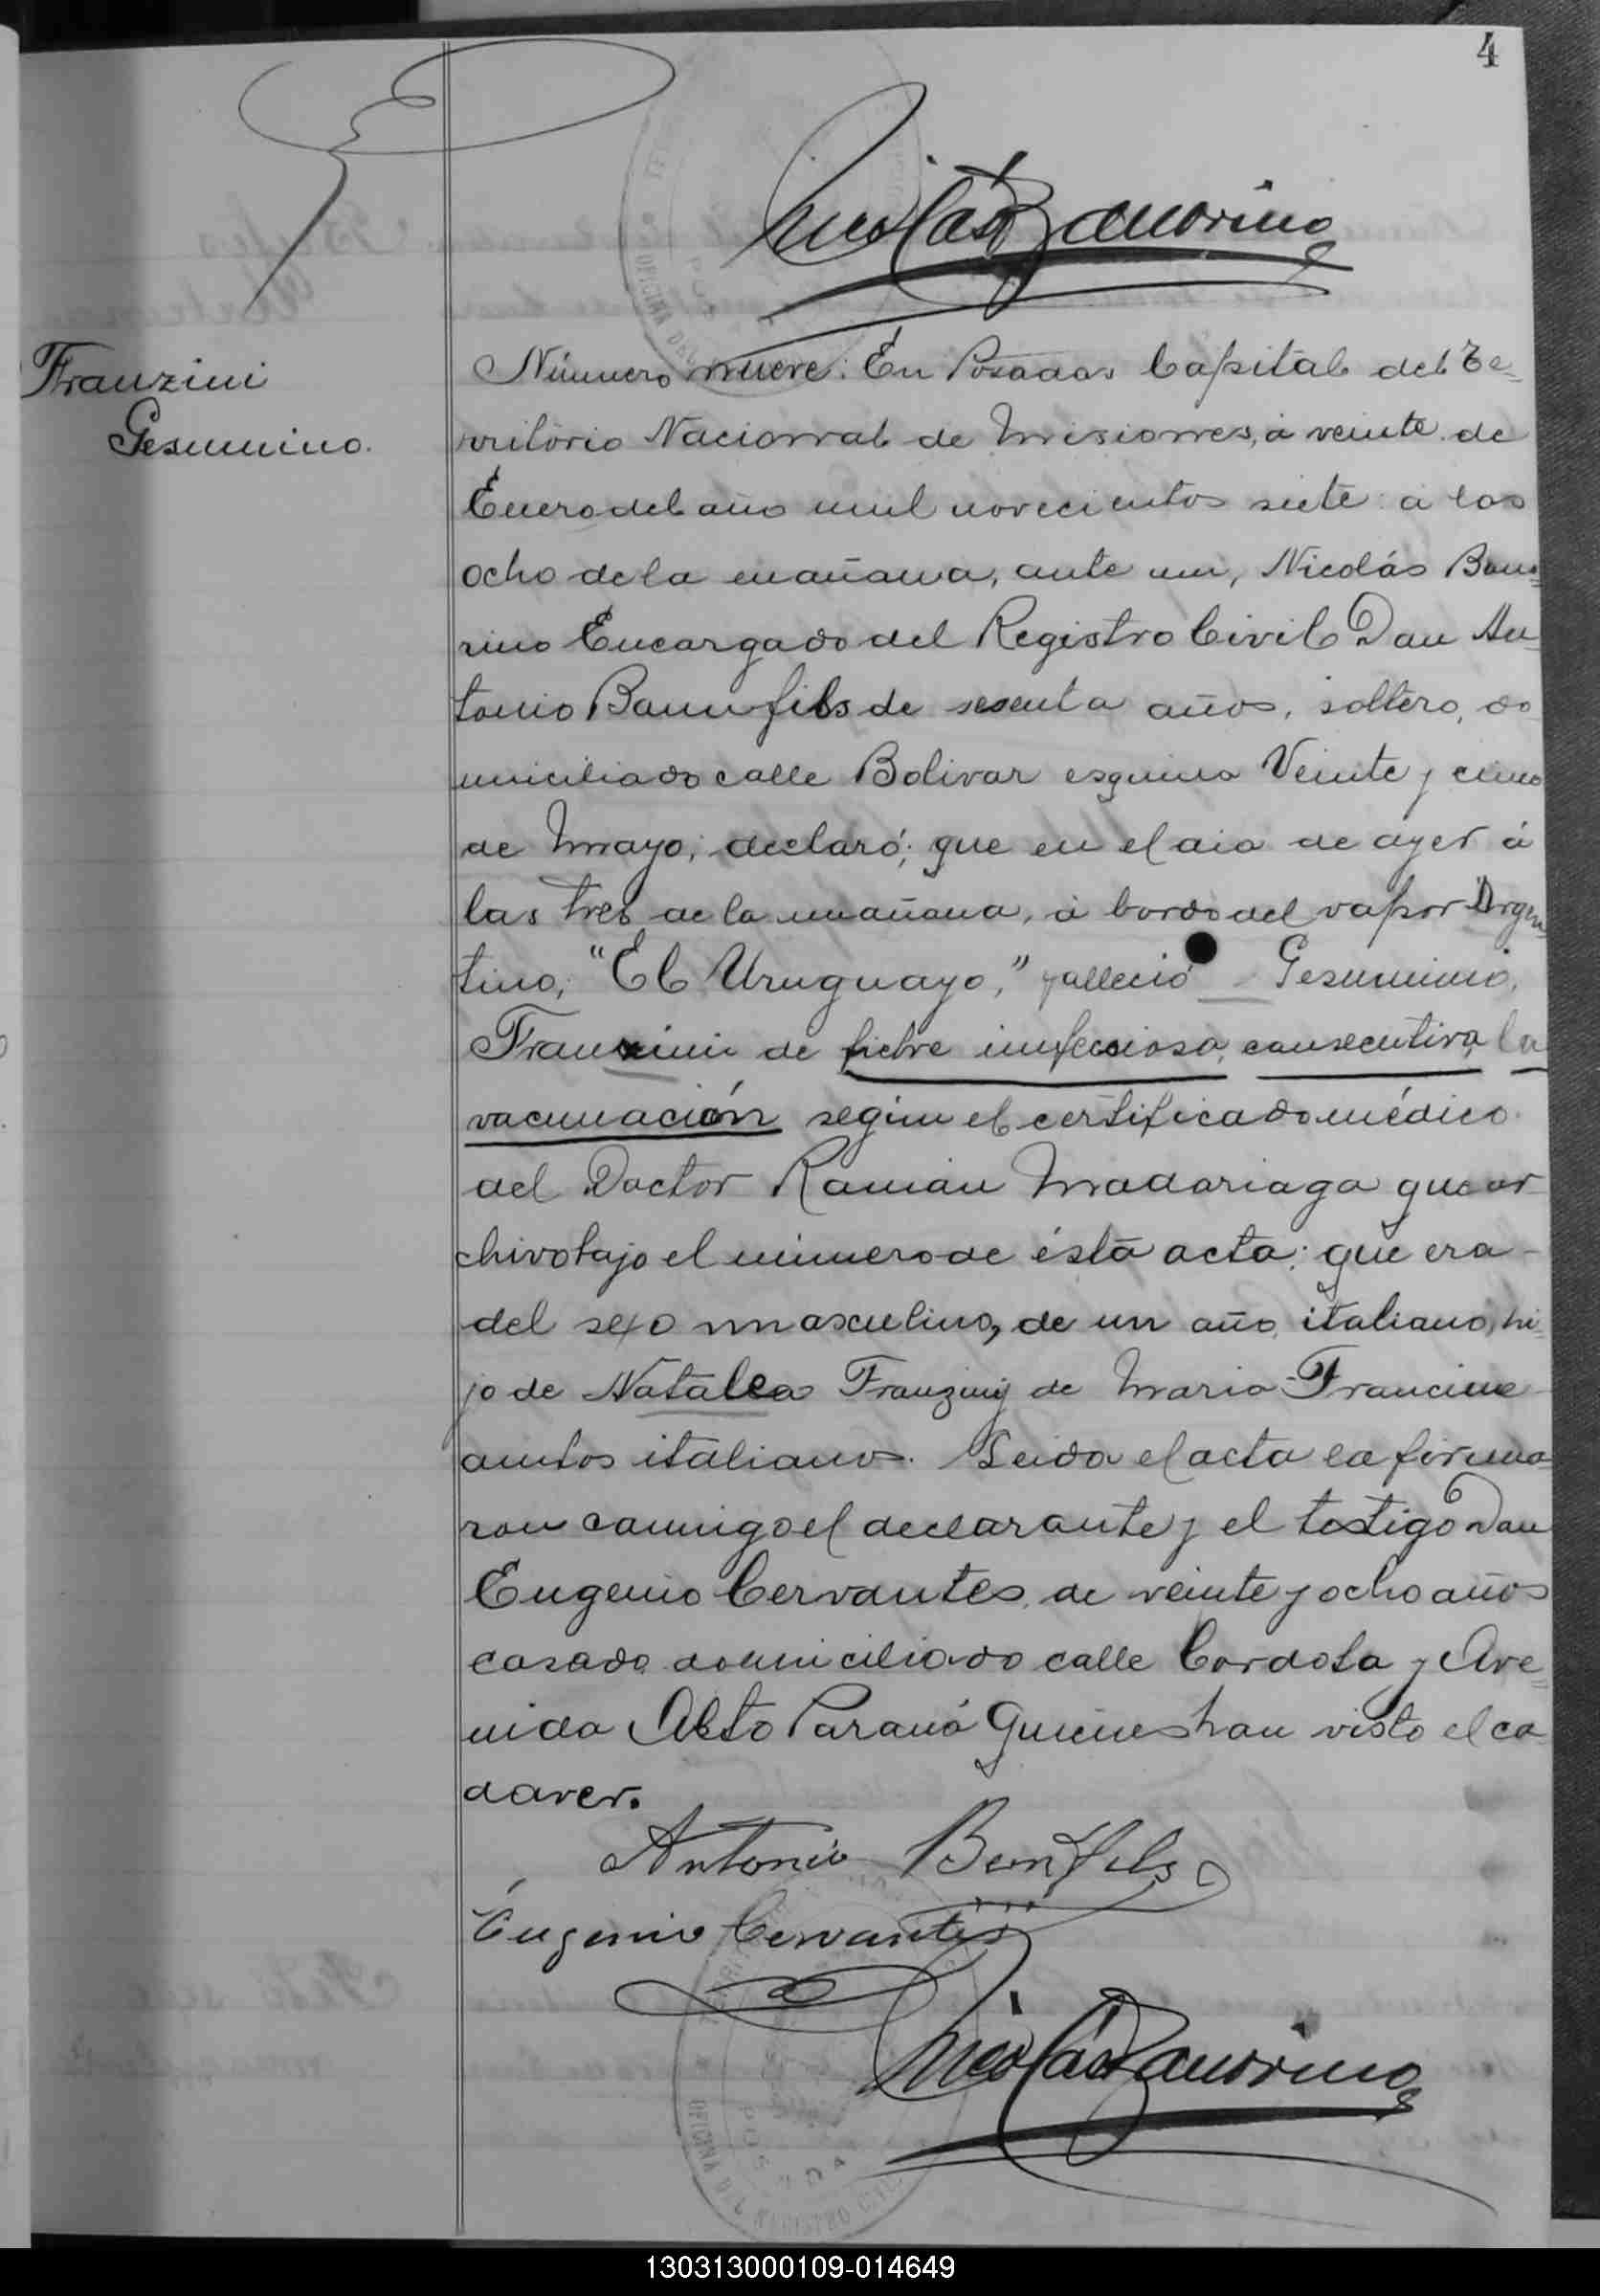 4
Nicolás Bamorino
Franzini
Gesumino.
Número nueve: En Posadas Capital del Te=
rritorio Nacional de Misiones, á veinte de
Enero del año mil novecientos siete á las
ocho de la mañana, ante mi, Nicolás Bamo=
rino Encargado del Registro Civil Don An=
tonio Bonnfils de sesenta años, soltero, do
miciliado calle Bolivar esquina Veinte y cinco
de Mayo, declaró; que en el dia de ayer á
las tres de la mañana, á bordo del vapor Argen=
tino, "El Uruguayo," falleció Gesumino,
Franzini de fiebre infecciosa, consecutiva la
vacunación según el certificado médico
del Doctor Ramón Madariaga que ar
chivo bajo el número de ésta acta: que era
del sexo masculino, de un año, italiano, hi=
jo de Natalea Franzini y de Maria Francine
ambos italianos. Leida el acta la firma=
ron conmigo el declarante y el testigo Don
Eugenio Cervantes, de veinte y ocho años
casado domiciliado calle Cordoba y Ave=
nida Alto Paraná quienes han visto el ca
daver.
Antonio Bonfils
Eugenio Cervantes
Nicolás Bamorino
OFICINA DEL REGISTRO CIVIL
POSADAS
130313000109-014649